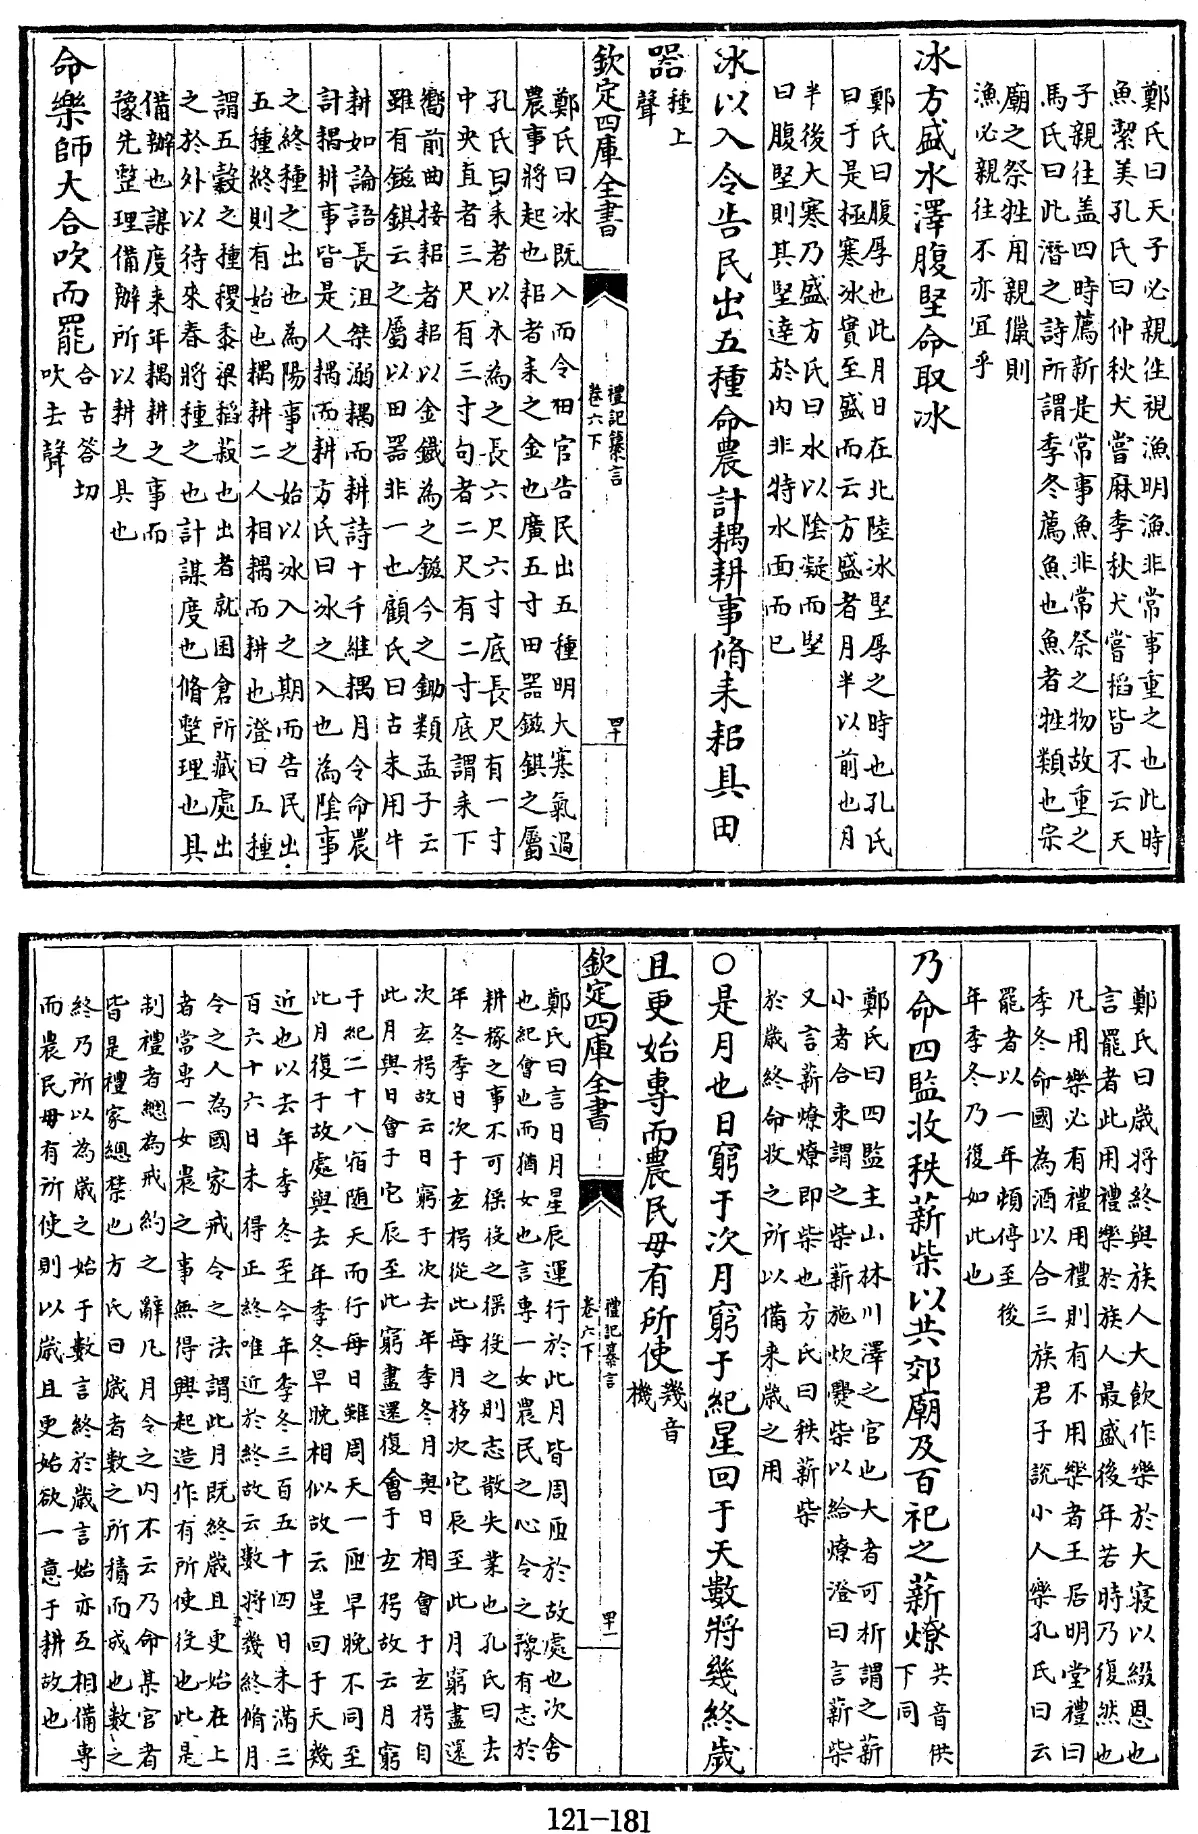 鄭氏曰天子必親徃視漁明漁非常事重之也此時
魚絜美孔氏曰仲秋犬嘗麻季秋犬嘗稻皆不云天
子親往盖四時薦新是常事魚非常祭之物故重之
馬氏曰此潛之詩所謂季冬薦魚也魚者牲類也宗
廟之祭牲用親獵則
漁必親往不亦宜乎
冰方盛水澤腹堅命取冰
鄭氏曰腹厚也此月日在北陸冰堅厚之時也孔氏
曰于是極寒冰實至盛而云方盛者月半以前也月
半後大寒乃盛方氏曰水以陰凝而堅
曰腹堅則其堅達於内非特水面而已
冰以入令告民出五種命農計耦耕事脩耒耜具田
器種上
聲
欽定四庫全書
禮記纂言
卷六下
四十
鄭氏曰冰既入而令田官告民出五種明大寒氣過
農事將起也耜者耒之金也廣五寸田器鎡錤之屬
孔氏曰耒者以木為之長六尺六寸底長尺有一寸
中央直者三尺有三寸句者二尺有二寸底謂耒下
嚮前曲接耜者耜以金鐵為之鎡今之鋤類孟子云
雖有鎡錤云之屬以田器非一也顧氏曰古耒用牛
耕如論語長沮桀溺耦而耕詩十千維耦月令命農
計耦耕事皆是人耦而耕方氏曰冰之入也為陰事
之終種之出也為陽事之始以冰入之期而告民出
五種終則有始也耦耕二人相耦而耕也澄曰五種
謂五穀之種稷黍梁稻菽也出者就囷倉所藏處出
之於外以待來春將種之也計謀度也脩整理也具
備辦也謀度來年耦耕之事而
豫先整理備辦所以耕之具也
命樂師大合吹而罷合古答切
吹去聲
鄭氏曰歳將終與族人大飲作樂於大寢以綴恩也
言罷者此用禮樂於族人最盛後年若時乃復然也
凡用樂必有禮用禮則有不用樂者王居明堂禮曰
季冬命國為酒以合三族君子説小人樂孔氏曰云
罷者以一年頓停至後
年季冬乃復如此也
乃命四監收秩薪柴以共郊廟及百祀之薪燎共音供
下同
鄭氏曰四監主山林川澤之官也大者可析謂之薪
小者合束謂之柴薪施炊爨柴以給燎澄曰言薪柴
又言薪燎燎即柴也方氏曰秩薪柴
於歳終命收之所以備來歳之用
○是月也日窮于次月窮于紀星回于天數將幾終歳
且更始專而農民毋有所使幾音
機
欽定四庫全書
禮記纂言
卷六下
四十一
鄭氏曰言日月星辰運行於此月皆周匝於故處也次舍
也紀會也而猶女也言專一女農民之心令之豫有志於
耕稼之事不可徭役之徭役之則志散失業也孔氏曰去
年冬季日次于玄枵從此每月移次它辰至此月窮盡還
次玄枵故云日窮于次去年季冬月與日相會于玄枵自
此月與日會于它辰至此窮盡還復會于玄枵故云月窮
于紀二十八宿隨天而行每日雖周天一匝早晚不同至
此月復于故處與去年季冬早晚相似故云星囘于天幾
近也以去年季冬至今年季冬三百五十四日未滿三
百六十六日未得正終唯近於終故云數將幾終脩月
令之人為國家戒令之法謂此月既終歳且更始在上
者當專一女農之事無得興起造作有所使役也此是
制禮者總為戒約之辭凡月令之内不云乃命某官者
皆是禮家總禁也方氏曰歳者數之所積而成也數之
終乃所以為歳之始于數言終於歳言始亦互相備專
而農民毋有所使則以歳且更始欲一意于耕故也
121-181